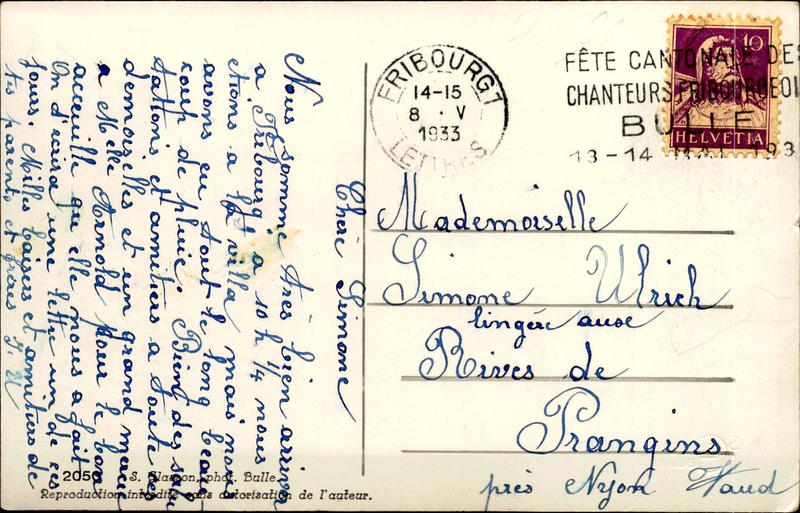 Chère Simone
Nous somme très bien arriver
a Fribourg. a 10 h ¼ nous
etions a la villa mais nous
avons eu tout le long beau-
coup de pluie. Bien des salu
tations et amitiers a toute ses
demoiselles et un grand merci
a Melle Arnold pour le bon
acceuille qu elle nous a fait
On t'ecrira une lettre un de ces
jours. Milles baisers et amitiers de
tes parents et frères
FRIBOURG 1
14-15
8 . V
1933
LETTRES
FÊTE CANTONALE DES
CHANTEURS FRIBOURGEOI
BULLE
13-14
10
HELVETIA
Mademoiselle
Simone Ulrich
lingère aux
Rives de
Prangins
près Nyon Vaud
205 S. Glasson, phot. Bulle.
Reproduction interdite sans autorisation de l'auteur.